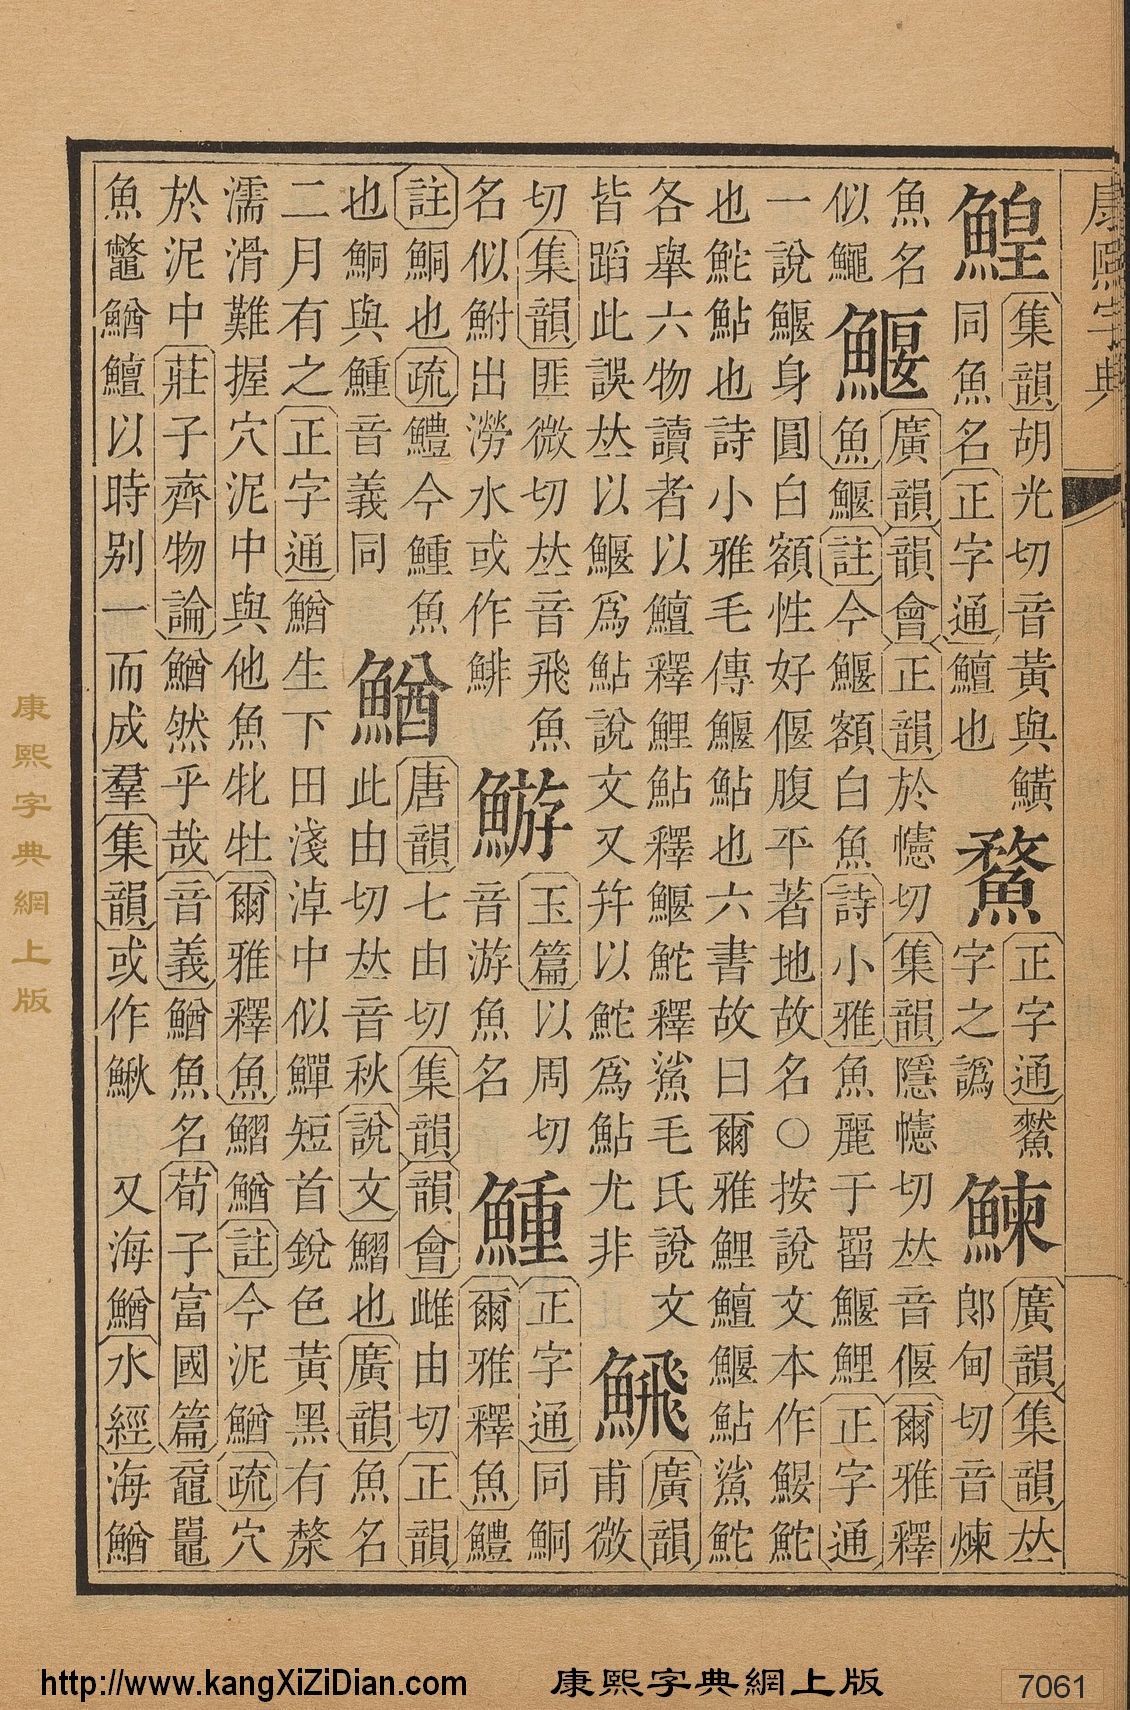 康熙字典
鰉
集韻胡光切音黃與鱑
同魚名正字通鱣也
正字通鰲
字之譌
鰊
廣韻集韻𠀤
郎甸切音煉
魚名
似鱦
鰋
廣韻韻會正韻於幰切集韻隱幰切𠀤音偃爾雅釋
魚鰋註今鰋額白魚詩小雅魚麗于罶鰋鯉正字通
一說鰋身圓白額性好偃腹平著地故名○按說文本作鮀
也鮀鮎也詩小雅毛傳鰋鮎也六書故曰爾雅鯉鱣鰋鮎鯊鮀
各舉六物讀者以鱣釋鯉鮎釋鰋鮀釋鯊毛氏說文
皆蹈此誤𠀤以鰋爲鮎說文又幷以鮀爲鮎尤非
廣韻
甫微
切集韻匪微切𠀤音飛魚
名似鮒出澇水或作鯡
玉篇以周切
音游魚名
䱰
正字通同鮦
爾雅釋魚鱧
註鮦也疏鱧今䱰魚
也鮦與䱰音義同
鰌
唐韻七由切集韻韻會雌由切正韻
此由切𠀤音秋說文鰼也廣韻魚名
二月有之正字通鰌生下田淺淖中似鱓短首銳色黃黑有漦
濡滑難握穴泥中與他魚牝牡爾雅釋魚鰼鰌註今泥鰌疏穴
於泥中莊子齊物論鰌然乎哉音義鰌魚名荀子富國篇黿鼉
魚鼈鰌鱣以時別一而成羣集韻或作鰍 又海鰌水經海鰌
康熙字典網上版
http://www.kangXiZiDian.com 康熙字典網上版 7061